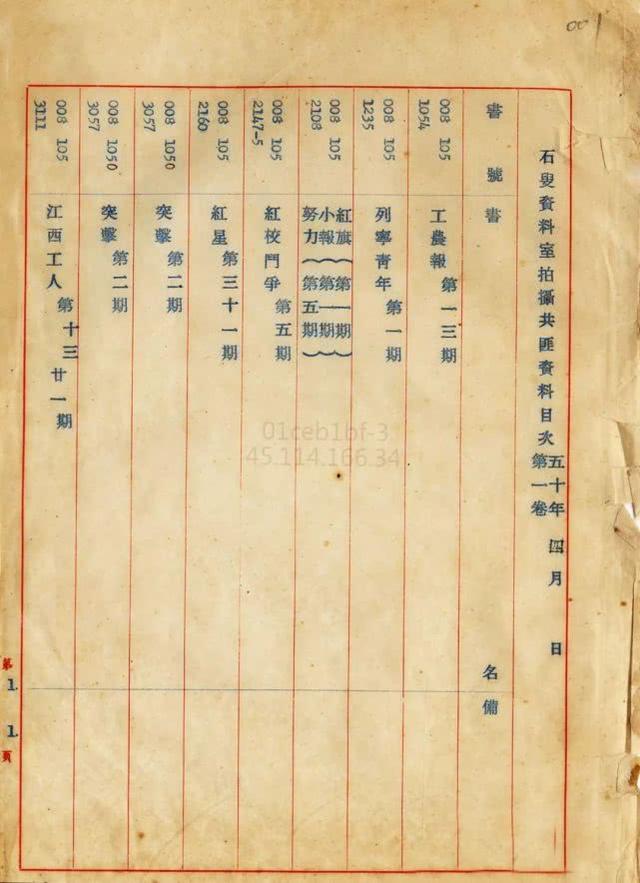 001
石叟資料室拍攝共匪資料目次 五十年 四月 日
第一卷
書號 書 名 備
008 105
1054
工農報 第一三期
008 105
1235
列寧青年 第一期
008 105
2108
紅旗(第一期)
小報(第一期)
努力(第五期)
008 105
2147-5
紅校鬥爭 第五期
008 105
2160
紅星 第三十一期
008 1050
3057
突擊 第二期
008 1050
3057
突擊 第二期
008 105
3111
江西工人 第十三 廿一期
第 1. 1. 頁
01ceb1bf-3
45.114.166.34